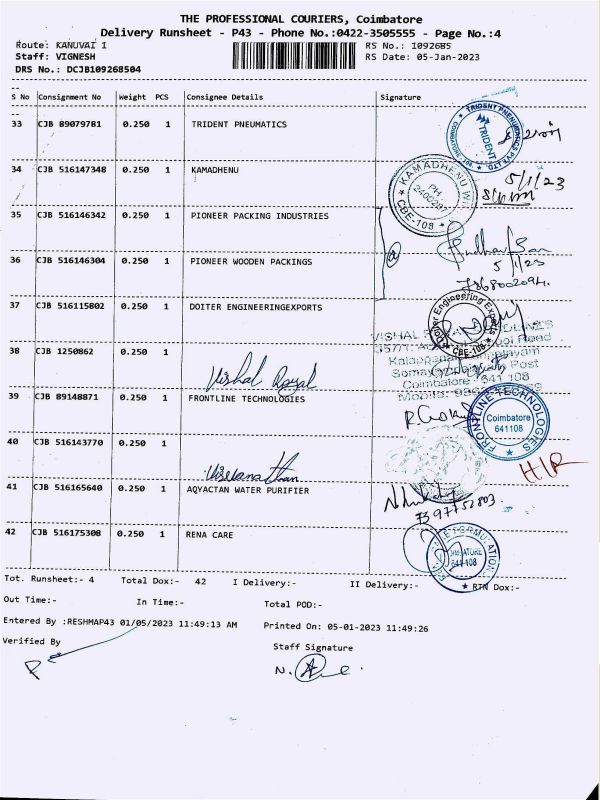 THE PROFESSIONAL COURIERS, Coimbatore
Delivery Runsheet - P43 - Phone No.:0422-3505555 - Page No.:4
Route: KANUVAI I RS No.: I092685
Staff: VIGNESH RS Date: 05-Jan-2023
DRS No.: DCJB109268504
S No Consignment No Weight PCS Consignee Details Signature
33 CJB 89079781 0.250 1 TRIDENT PNEUMATICS
TRIDENT PNEUMATICS PVT LTD
TRIDENT
34 CJB 516147348 0.250 1 KAMADHENU
KAMADHENU
PH
CBE-108
5/1/23
35 CJB 516146342 0.250 1 PIONEER PACKING INDUSTRIES
36 CJB 516146304 0.250 1 PIONEER WOODEN PACKINGS
5/1/23
37 CJB 516115802 0.250 1 DOITER ENGINEERINGEXPORTS
Doiter Engineering Exports
CBE-108
VISHAL
38 CJB 1250862 0.250 1
Vishal
Road
Post
Coimbatore - 641 108
Mobile:
39 CJB 89148871 0.250 1 FRONTLINE TECHNOLOGIES
FRONTLINE TECHNOLOGIES
Coimbatore
641108
40 CJB 516143770 0.250 1
Viswanathan
41 CJB 516165640 0.250 1 AQVACTAN WATER PURIFIER
42 CJB 516175308 0.250 1 RENA CARE
641 108
Tot. Runsheet:- 4 Total Dox:- 42 I Delivery:- II Delivery:- RTN Dox:-
Out Time:- In Time:- Total POD:-
Entered By :RESHMAP43 01/05/2023 11:49:13 AM Printed On: 05-01-2023 11:49:26
Verified By Staff Signature